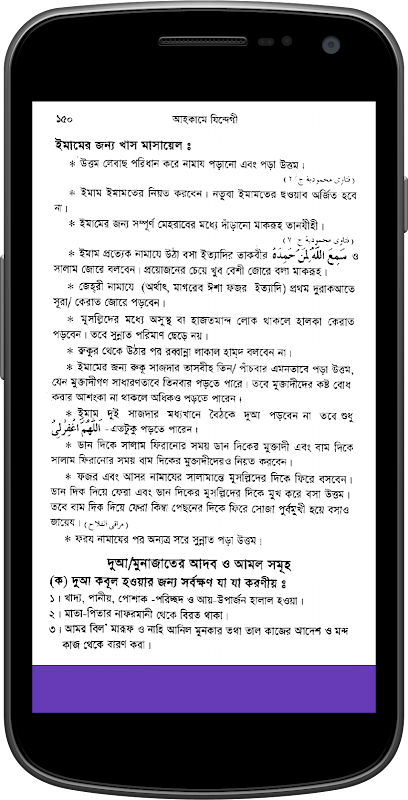 ১৫০ আহকামে যিন্দেগী
ইমামের জন্য খাস মাসায়েল ঃ
* উত্তম লেবাছ পরিধান করে নামায পড়ানো এবং পড়া উত্তম।
(فتاوى محمودية ج/٢)
* ইমাম ইমামতের নিয়ত করবেন। নতুবা ইমামতের ছওয়াব অর্জিত হবে
না।
* ইমামের জন্য সম্পূর্ণ মেহরাবের মধ্যে দাঁড়ানো মাকরূহ তানযীহী।
(فتاوى محمودية ج/٧)
* ইমাম প্রত্যেক নামাযে উঠা বসা ইত্যাদির তাকবীর سَمِعَ اللّٰهُ لِمَنْ حَمِدَهُ ও
সালাম জোরে বলবেন। প্রয়োজনের চেয়ে খুব বেশী জোরে বলা মাকরূহ।
* জেহ্‌রী নামাযে (অর্থাৎ, মাগরেব ঈশা ফজর ইত্যাদি) প্রথম দুরাকআতে
সূরা/ কেরাত জোরে পড়বেন।
* মুসল্লিদের মধ্যে অসুস্থ বা হাজতমান্দ লোক থাকলে হালকা কেরাত
পড়বেন। তবে সুন্নাত পরিমাণ ছেড়ে নয়।
* রুকূর থেকে উঠার পর রব্বান্না লাকাল হাম্‌দ বলবেন না।
* ইমামের জন্য রুকূ সাজদার তাসবীহ তিন/ পাঁচবার এমনতাবে পড়া উত্তম,
যেন মুক্তাদীগণ সাধারণতাবে তিনবার পড়তে পারে। তবে মুক্তাদীদের কষ্ট বোধ
করার আশংকা না থাকলে অধিকও পড়তে পারেন।
* ইমাম দুই সাজদার মধ্যখানে বৈঠকে দুআ পড়বেন না তবে শুধু
اَللّٰهُمَّ اغْفِرْلِىْ - এতটুকু পড়তে পারেন।
* ডান দিকে সালাম ফিরানোর সময় ডান দিকের মুক্তাদী এবং বাম দিকে
সালাম ফিরানোর সময় বাম দিকের মুক্তাদীদেরও নিয়ত করবেন।
* ফজর এবং আসর নামাযের সালামান্তে মুসল্লিদের দিকে ফিরে বসবেন।
ডান দিক দিয়ে ফেরা এবং ডান দিকের মুসল্লিদের দিকে মুখ করে বসা উত্তম।
তবে বাম দিক দিয়ে ফেরা কিম্বা পেছনের দিকে ফিরে সোজা পূর্বমুখী হয়ে বসাও
জায়েয। (مراقى الفلاح)
* ফরয নামাযের পর অন্যত্র সরে সুন্নাত পড়া উত্তম।
দুআ/মুনাজাতের আদব ও আমল সমূহ
(ক) দুআ কবূল হওয়ার জন্য সর্বক্ষণ যা যা করণীয় ঃ
১। খাদ্য, পানীয়, পোশাক -পরিচ্ছদ ও আয়-উপার্জন হালাল হওয়া।
২। মাতা-পিতার নাফরমানী থেকে বিরত থাকা।
৩। আমর বিল' মারূফ ও নাহি আনিল মুনকার তথা তাল কাজের আদেশ ও মন্দ
কাজ থেকে বারণ করা।